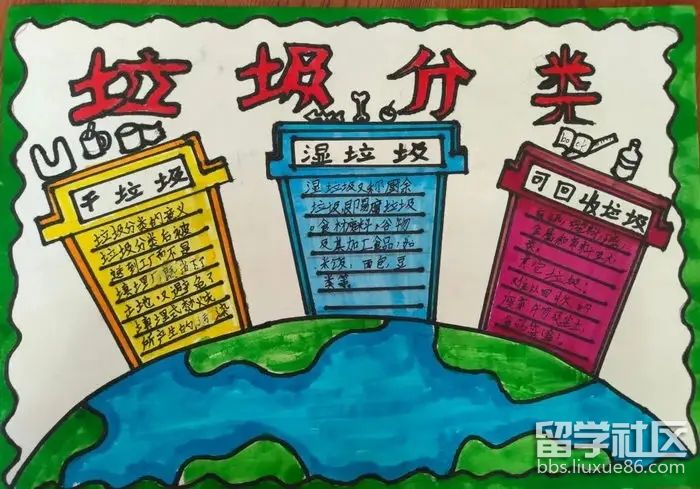 垃圾分类
干垃圾
垃圾分类的意义
垃圾分类后被
送到工厂而不是
填埋厂,既省下了
土地,又避免了
填埋或焚烧
所产生的污染
湿垃圾
湿垃圾又称厨余
垃圾,即易腐垃圾
食材废料,谷物
及其加工食品,如
米饭,面包,豆
类等
可回收垃圾
其它垃圾:
难以回收的
留学社区
bbs.liuxue86.com